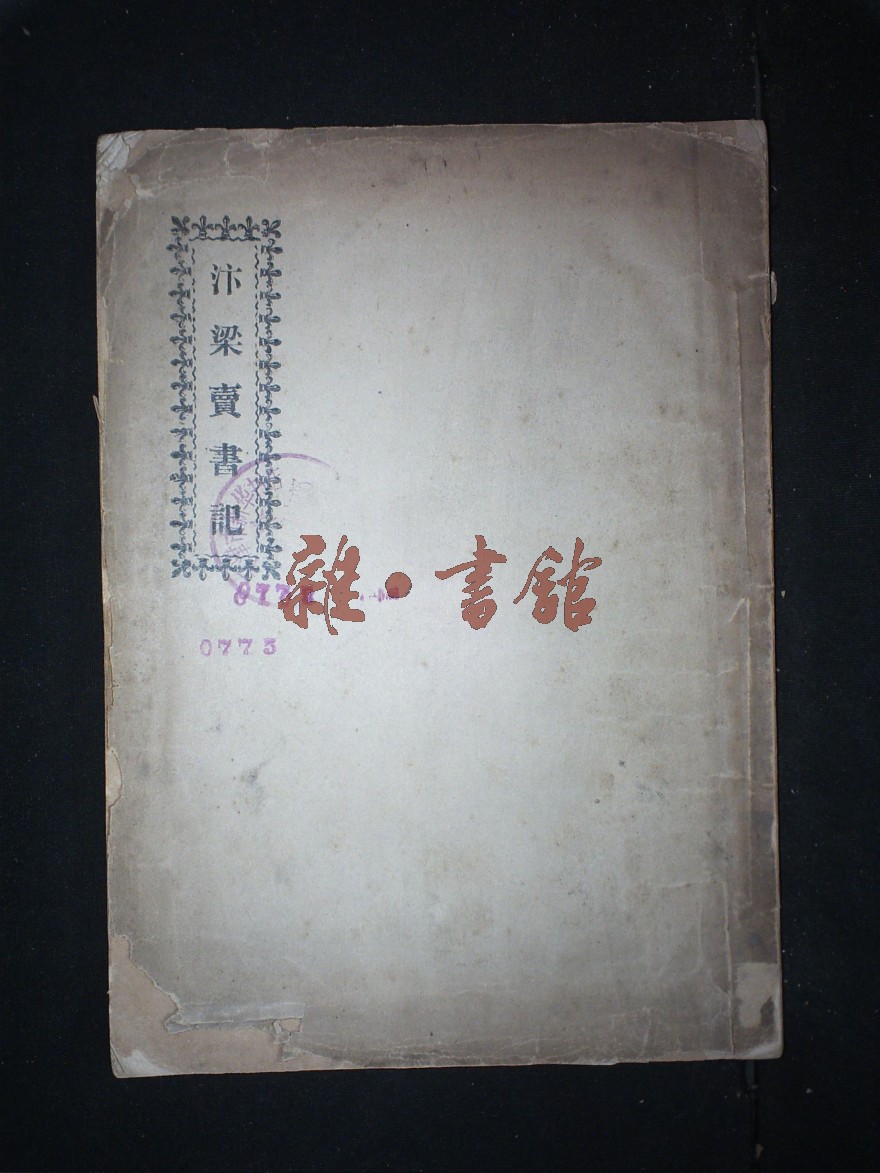 汴梁賣書記
雜·書館
0773